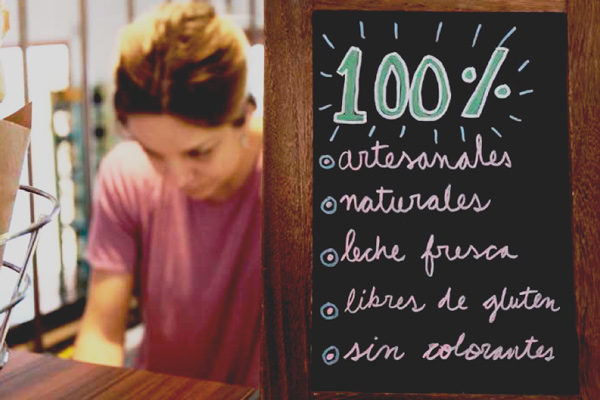 100%
artesanales
naturales
leche fresca
libres de gluten
sin colorantes